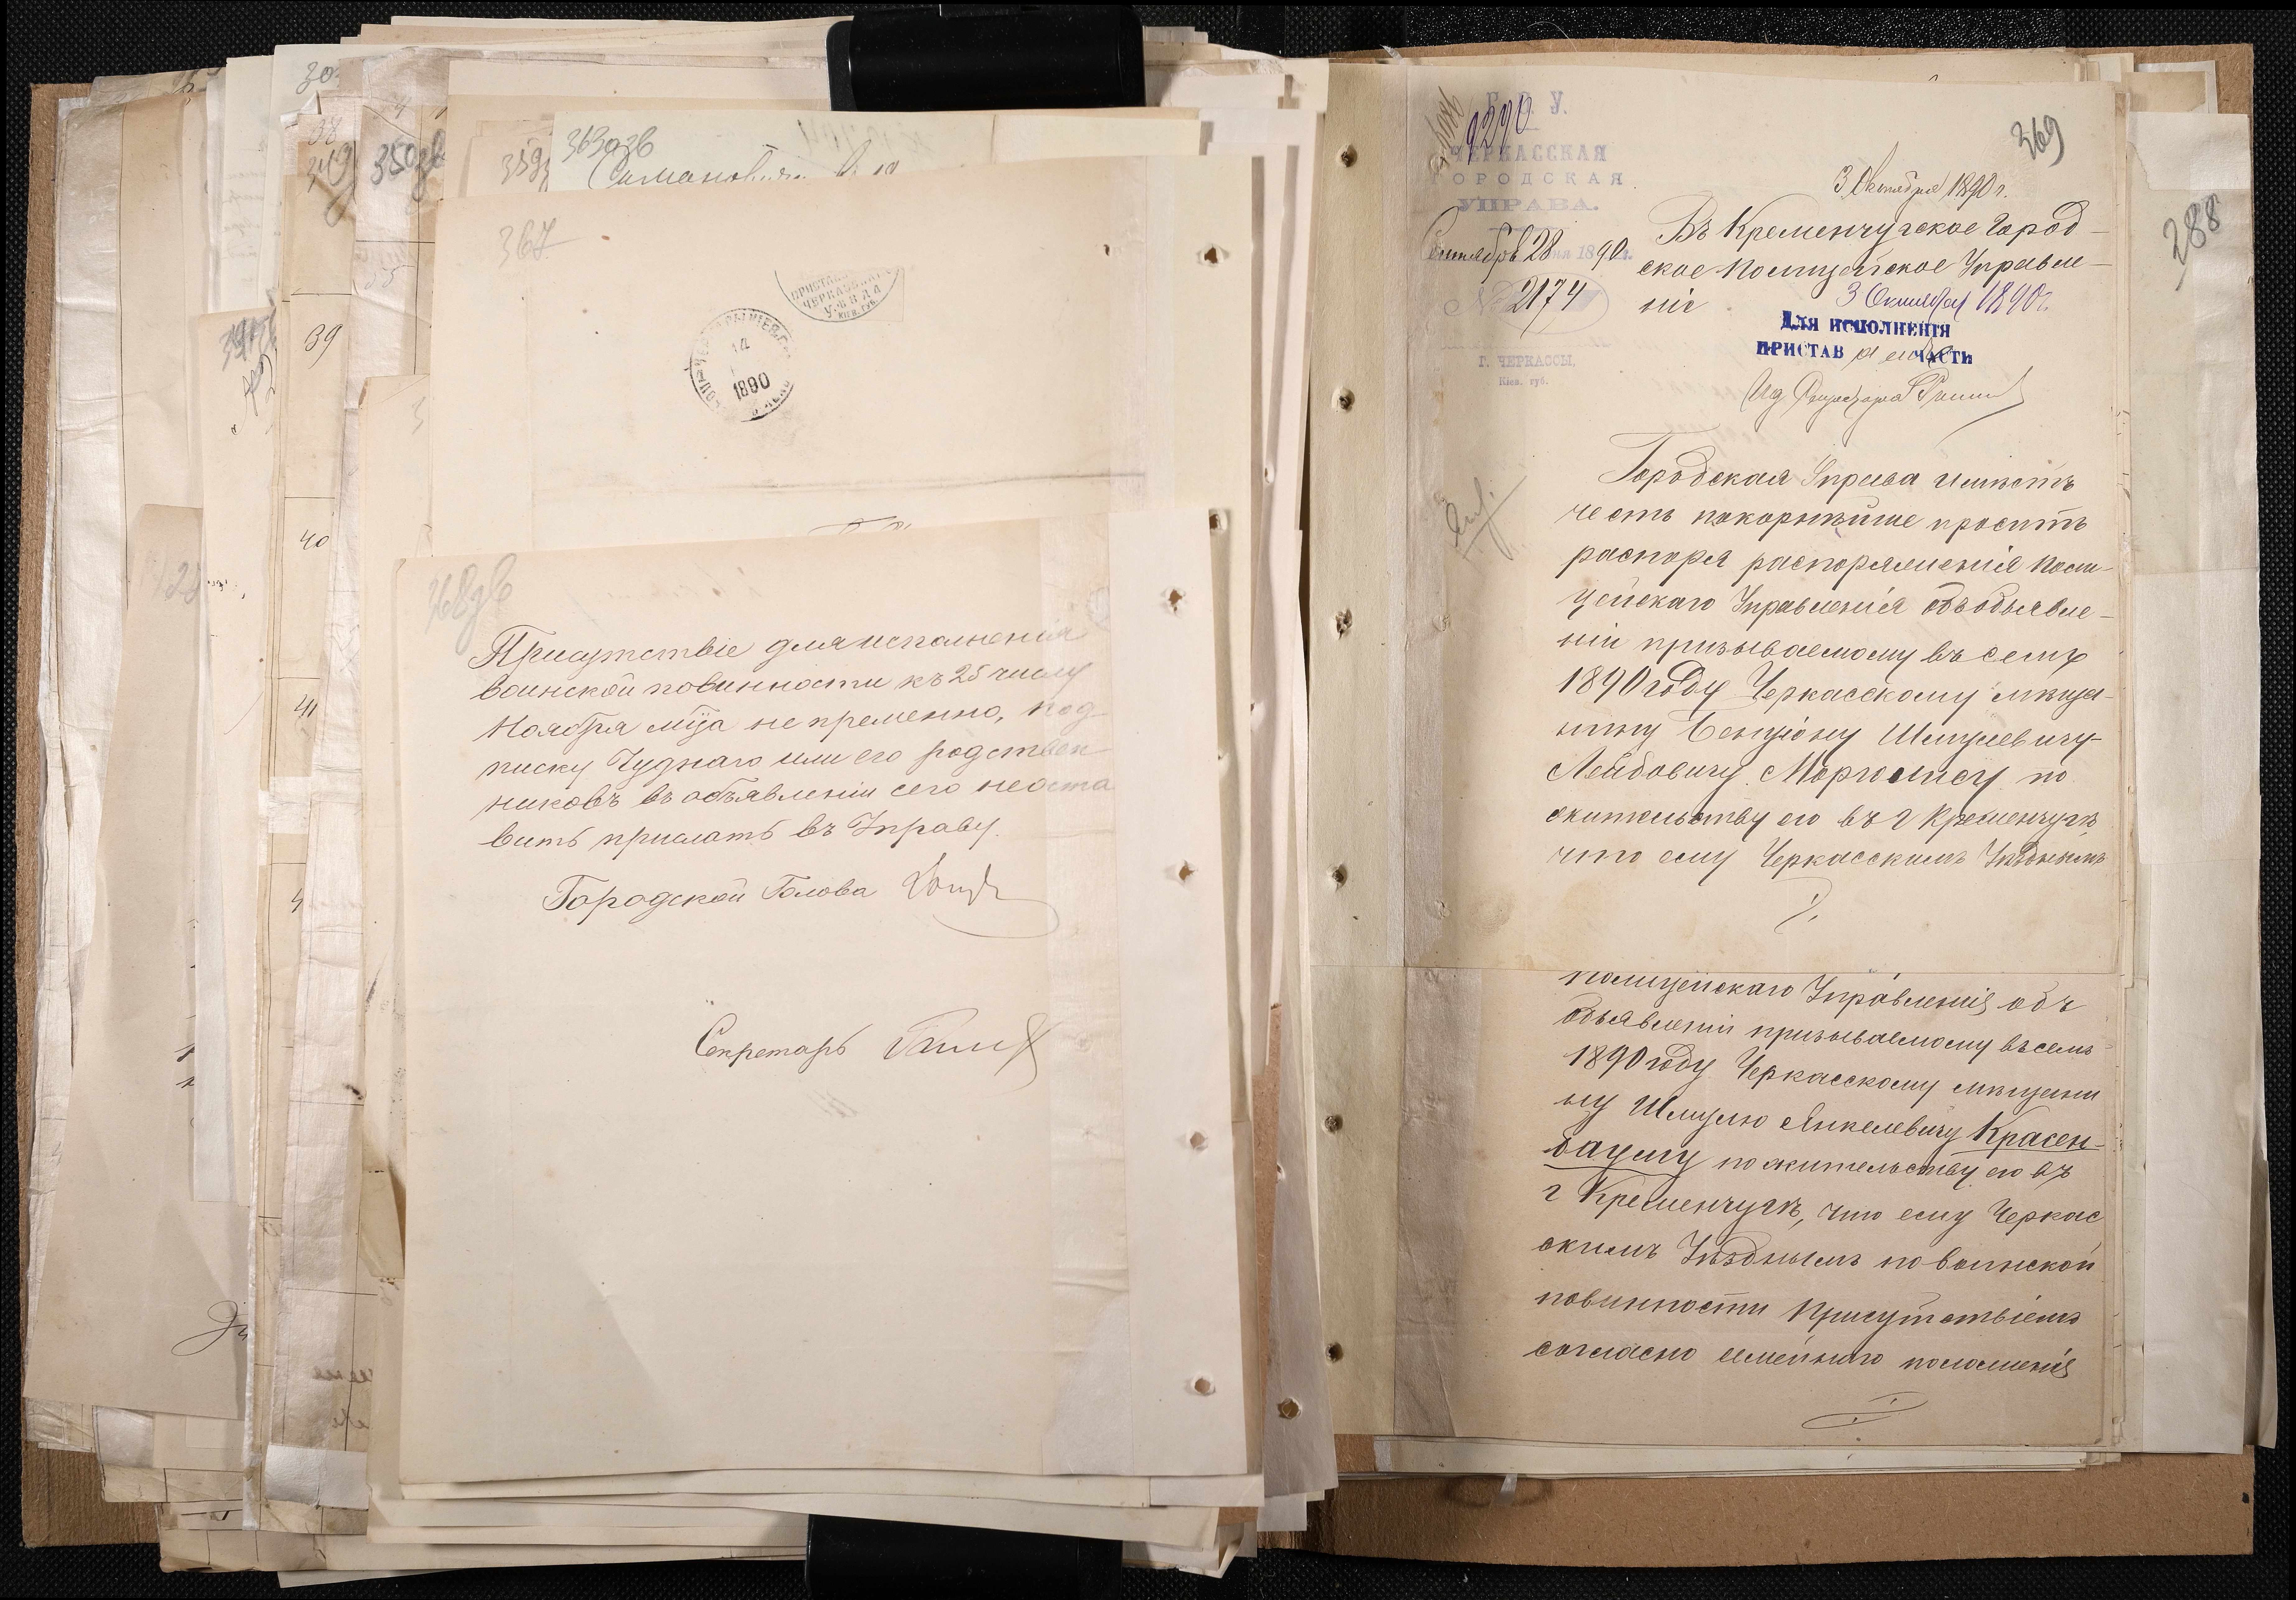 30
38
349
350 зв
39
40
41
28
359
363 зв
367
ПРИСТАВ
ЧЕРКАССКАГО
УѢЗДА
КІЕВ. ГУБ.
14
1890
368 зв
Присутствіе для исполненія
воинской повинности къ 25 числу
Ноября мца не пременно, под-
писку Чуднаго или его родствен-
никовъ въ объявленіи сего неоста
вить прислать въ Управу.
Городской Голова
Секретарь
369
288
9290
Г. С. У.
ЧЕРКАССКАЯ
ГОРОДСКАЯ
УПРАВА.
Сентября 28 дня 1890 г.
№ 2174
Г. ЧЕРКАССЫ,
Кіев. губ.
3 Октября 1890 г.
Въ Кременчугское Город-
ское Полицейское Управле-
ніе
3 Октября 1890 г.
Для исполненія
ПРИСТАВ ЧАСТИ
Городская Управа имѣетъ
честь покорнѣйше просить
распоря распоряженія Поли-
цейскаго Управленія объ объявле-
ніи призываемому въ семъ
1890 году Черкасскому мѣща-
нину Бенціону Шмулевичу-
Лейбовичу Марголису по
жительству его въ г Кременчугѣ,
что ему Черкасскимъ Уѣзднымъ
Полицейскаго Управленія объ
объявленіи призываемому въ семъ
1890 году Черкасскому мѣщани
ну Шмулю Янкелевичу Красен-
бауму по жительству его въ
г Кременчугѣ, что ему Черкас
скимъ Уѣзднымъ по воинской
повинности Присутствіемъ
согласно семейнаго положенія